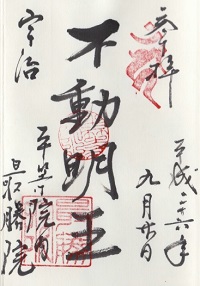 奉拝
平成二十六年
九月廿日
不動明王
宇治
平等院内
最勝院